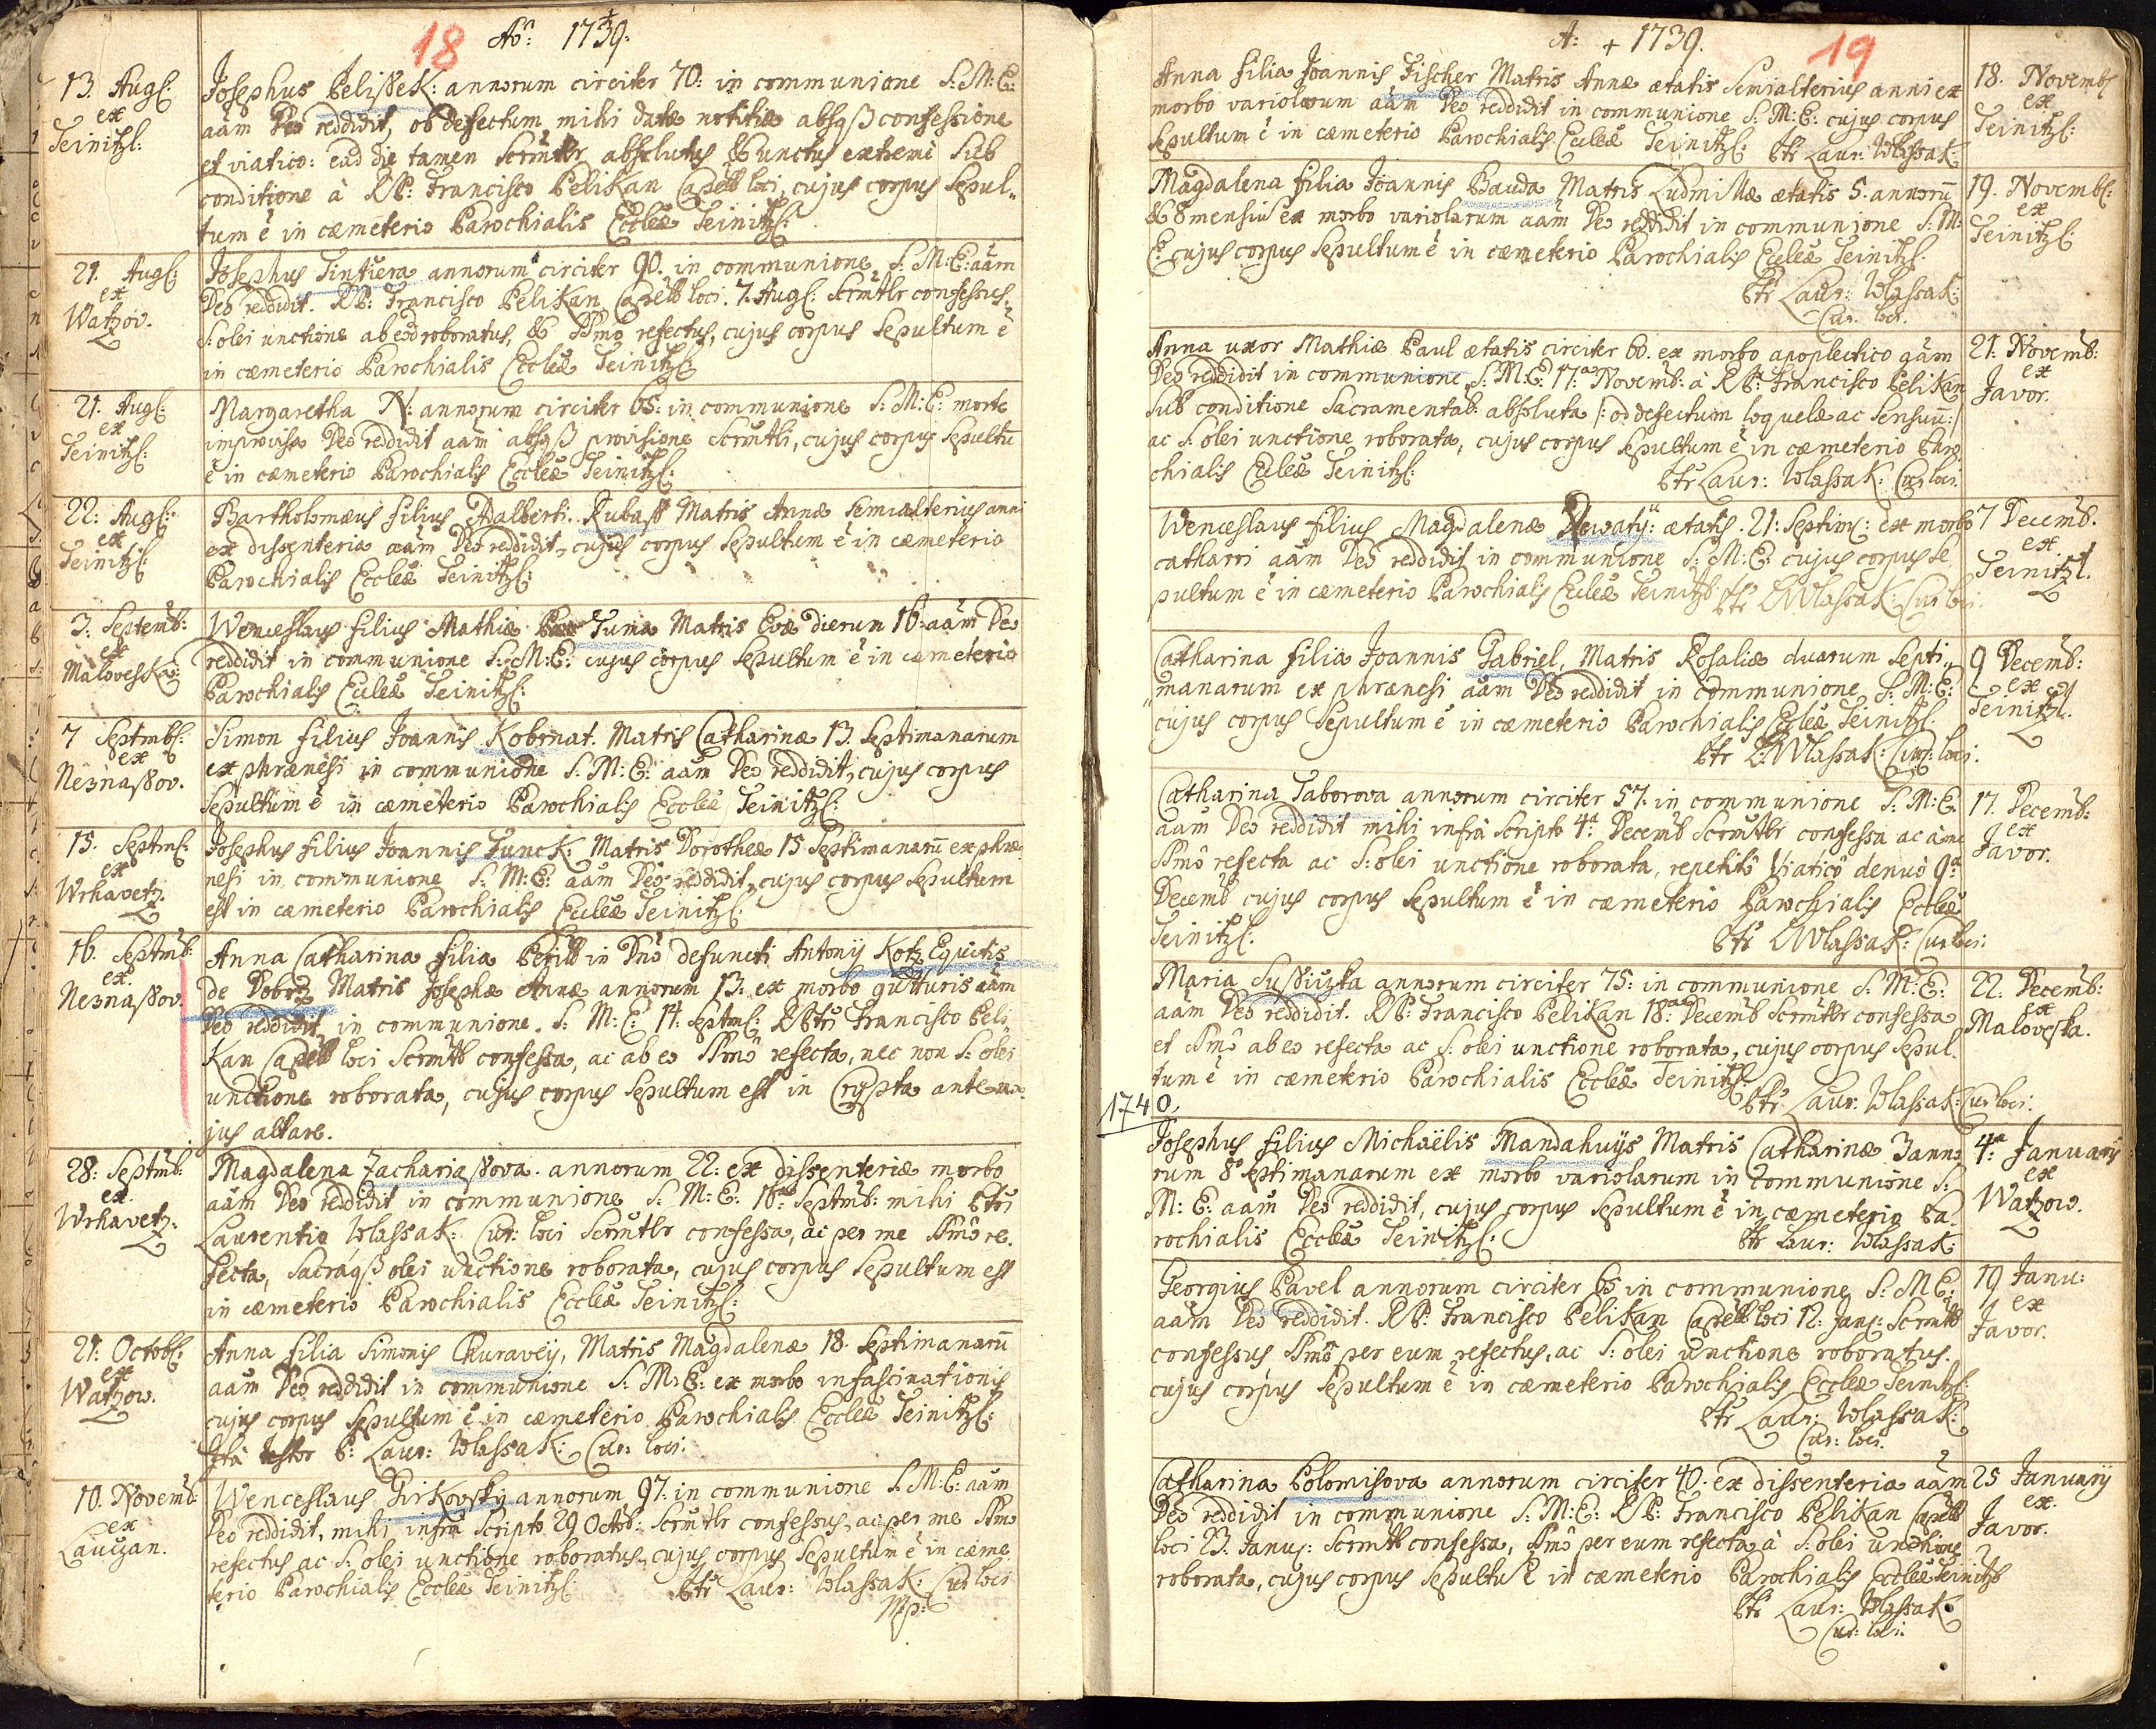 18 Aõ: 1739.
13. Augs:
ex
Teinitzl:
Josephus Pelißek: annorum circiter 70: in communione S: M: E:
aãm Deo reddidit, ob defectum mihi datæ notitiæ absqß confessione
et viatico: eãd die tamen Scrmtlr absolutus & unctus extremè sub
conditione à RP: Francisco Pelikan Capell loci, cujus corpus sepul„
tum ẽ in cæmeterio Parochialis Eccleæ Teinitzl:
21. Augs:
ex
Watzov.
Josephus Tintiera annorum circiter 90. in communione S: M: E: aãm
Deo reddidit. RP: Francisco Pelikan Capell loci. 7. Augs: Scrmtlr confessus,
S: olei unctione ab eod roboratus, & SSmo refectus, cujus corpus sepultum ẽ
in cæmeterio Parochialis Eccleæ Teinitzl:
21. Augs:
ex
Teinitzl:
Margaretha N: annorum circiter 65: in communione S: M: E: morte
improvisa Deo reddidit aãm absqß provisione Scrmtli, cujus corpus sepultũ
ẽ in cæmeterio Parochialis Eccleæ Teinitzl:
22: Augs:
ex
Teinitzl:
Bartholomæus filius Adalberti Kubaß Matris Annæ semialterius anni
ex dissenteria aãm Deo reddidit, cujus corpus sepultum ẽ in cæmeterio
Parochialis Eccleæ Teinitzl:
3: Septemb:
ex
Maloveska:
Wenceslaus filius Mathiæ Tuma Matris Evæ dierum 16: aãm Deo
reddidit in communione S: M: E: cujus corpus sepultum ẽ in cæmeterio
Parochialis Eccleæ Teinitzl:
7 Septmbs:
ex
Neznaßov.
Simon filius Joannis Kobrnat. Matris Catharinæ 13. Septimanarum
ex phrænesi in communione S: M: E: aãm Deo reddidit, cujus corpus
sepultum ẽ in cæmeterio Parochialis Eccleæ Teinitzl:
15. Septms:
ex
Wrhavetz.
Josephus filius Joannis Funck: Matris Dorotheæ 15 Septimanarũ ex phræ
nesi in communione S: M: E: aãm Deo reddidit, cujus corpus sepultum
est in cæmeterio Parochialis Eccleæ Teinitzl:
16. Septmb:
ex
Neznaßov.
Anna Catharina filia in Dnõ defuncti Antonij Kotz Equitis
de Dobrz Matris Josephæ Annæ annorum 13: ex morbo gutturis aãm
Deo reddidit in communione. S: M: E: 14: Septms: RPtri Francisco Peli
kan Capell loci Scrmtlr confessa, ac ab eo SSmo refecta, nec non S: olei
unctione roborata, cujus corpus sepultum est in Crypta ante ma
jus altare.
28: Septmb:
ex
Wrhavetz.
Magdalena Zachariaßova. annorum 22: ex dissenteriæ morbo
aãm Deo reddidit in communione S: M: E: 16ta Septmb: mihi Ptri
Laurentio Wlassak: Cur: loci Scrmtlr confessa, ac per me SSmõ re.
fecta, Sacraqß olei unctione roborata, cujus corpus sepultum est
in cæmeterio Parochialis Eccleæ Teinitzl:
21: Octobs:
ex
Watzow.
Anna filia Simonis Churavëy, Matris Magdalenæ 18. Septimanarũ
aãm Deo reddidit in communione S: M: E: ex morbo infascinationis
cujus corpus sepultum ẽ in cæmeterio Parochialis Eccleæ Teinitzl:
Ita testor P: Laur: Wlassak: Cur: loci.
10. Novemb:
ex
Lauczan.
Wenceslaus Girkovsky annorum 97: in communione S: M: E: aãm
Deo reddidit, mihi infra scripto 29 Octob: Scrmtlr confessus, ac per me SSmo
refectus ac S: olei unctione roboratus, cujus corpus sepultum ẽ in cæme
terio Parochialis Eccleæ Teinitzl: Ptr Laur: Wlassak: Cur loci
Mp:
A: + 1739. 19
Anna filia Joannis Fischer Matris Annæ ætatis semialterius anni ex
morbo variolarum aãm Deo reddidit in communione S: M: E: cujus corpus
sepultum ẽ in cæmeterio Parochialis Eccleæ Teinitzl: Ptr Laur: Wlassak:
18. Novemb
ex
Teinitzl:
Magdalena filia Joannis Bauda Matris Ludmillæ ætatis 5. annorũ
& 8 mensiũ ex morbo variolarum aãm Deo reddidit in communione S: M:
E: cujus corpus sepultum ẽ in cæmeterio Parochialis Eccleæ Teinitzl.
Ptr Laur: Wlassak:
Cur: loci.
19. Novembs:
ex
Teinitzl:
Anna uxor Mathiæ Paul ætatis circiter 60. ex morbo apoplectico aãm
Deo reddidit in communione S. M: E: 17:a Novemb: à RP: Francisco Pelikan
sub conditione Sacramentab: absoluta /: ob defectum loquelæ ac sensuũ:/
ac S: olei unctione roborata, cujus corpus sepultum ẽ in cæmeterio Paro
chialis Eccleæ Teinitzl: Ptr Laur: Wlassak: Cur loci.
21: Novemb:
ex
Javor.
Wenceslaus filius Magdalenæ ætatis. 21: Septim: ex morbo
catharri aãm Deo reddidit in communione S: M: E: cujus corpus se
pultum ẽ in cæmeterio Parochialis Eccleæ Teinitzl: Ptr L Wlassak: Cur loci.
7 Decemb.
ex
Teinitzl.
Catharina filia Joannis Gabriel, Matris Rosaliæ duarum Septi„
„manarum ex phrænesi aãm Deo reddidit in communione S: M: E:
cujus corpus sepultum ẽ in cæmeterio Parochialis Eccleæ Teinitzl:
Ptr L: Wlassak: Cur: loci.
9 Decemb:
ex
Teinitzl.
Catharina Taborova annorum circiter 57. in communione S: M: E.
aãm Deo reddidit mihi infrà scripto 4a: Decemb Scrmtlr confessa ac à me
SSmõ refecta ac S: olei unctione roborata, repetitô Viaticô denuò 9a:
Decemb cujus corpus sepultum ẽ in cæmeterio Parochialis Eccleæ
Teinitzl: Ptr L Wlassak: Cur loci:
17. Decemb:
ex
Javor.
Maria Sußiczka annorum circiter 75: in communione S: M: E:
aãm Deo reddidit. RP: Francisco Pelikan 18:a Decemb Scrmtlr confessa
et SSmõ ab eo refecta ac S: olei unctione roborata, cujus corpus sepul.
tum ẽ in cæmeterio Parochialis Eccleæ Teinitzl:
Ptr Laur: Wlassak: Cur loci:
22: Decemb:
ex
Maloveska.
1740.
Josephus filius Michaëlis Mandahuijs Matris Catharinæ 3 anno
rum 8 Septimanarum ex morbo variolarum in communione S:
M: E: aãm Deo reddidit, cujus corpus sepultum ẽ in cæmeterio Pa
rochialis Eccleæ Teinitzl: Ptr Laur: Wlassak:
4:a Januarij
ex
Watzow.
Georgius Pavel annorum circiter 65 in communione S: M E:
aãm Deo reddidit. RP: Francisco Pelikan Capell loci 12: Janu: Scrmtlr
confessus SSmõ per eum refectus, ac S: olei unctione roboratus.
cujus corpus sepultum ẽ in cæmeterio Parochialis Eccleæ Teinitzl:
Ptr Laur: Wlassak:
Cur: loci.
19 Janu:
ex
Javor.
Catharina Polomisova annorum circiter 40: ex dissenteria aãm
Deo reddidit in communione S: M: E: RP: Francisco Pelikan Capell
loci 23. Janu: Scrmtlr confessa, SSmõ per eum refecta à S: olei unctione
roborata, cujus corpus sepultũ ẽ in cæmeterio Parochialis Eccleæ Teinitzl
Ptr Laur: Wlassak:
Cur: loci.
25 Januarij
ex.
Javor.